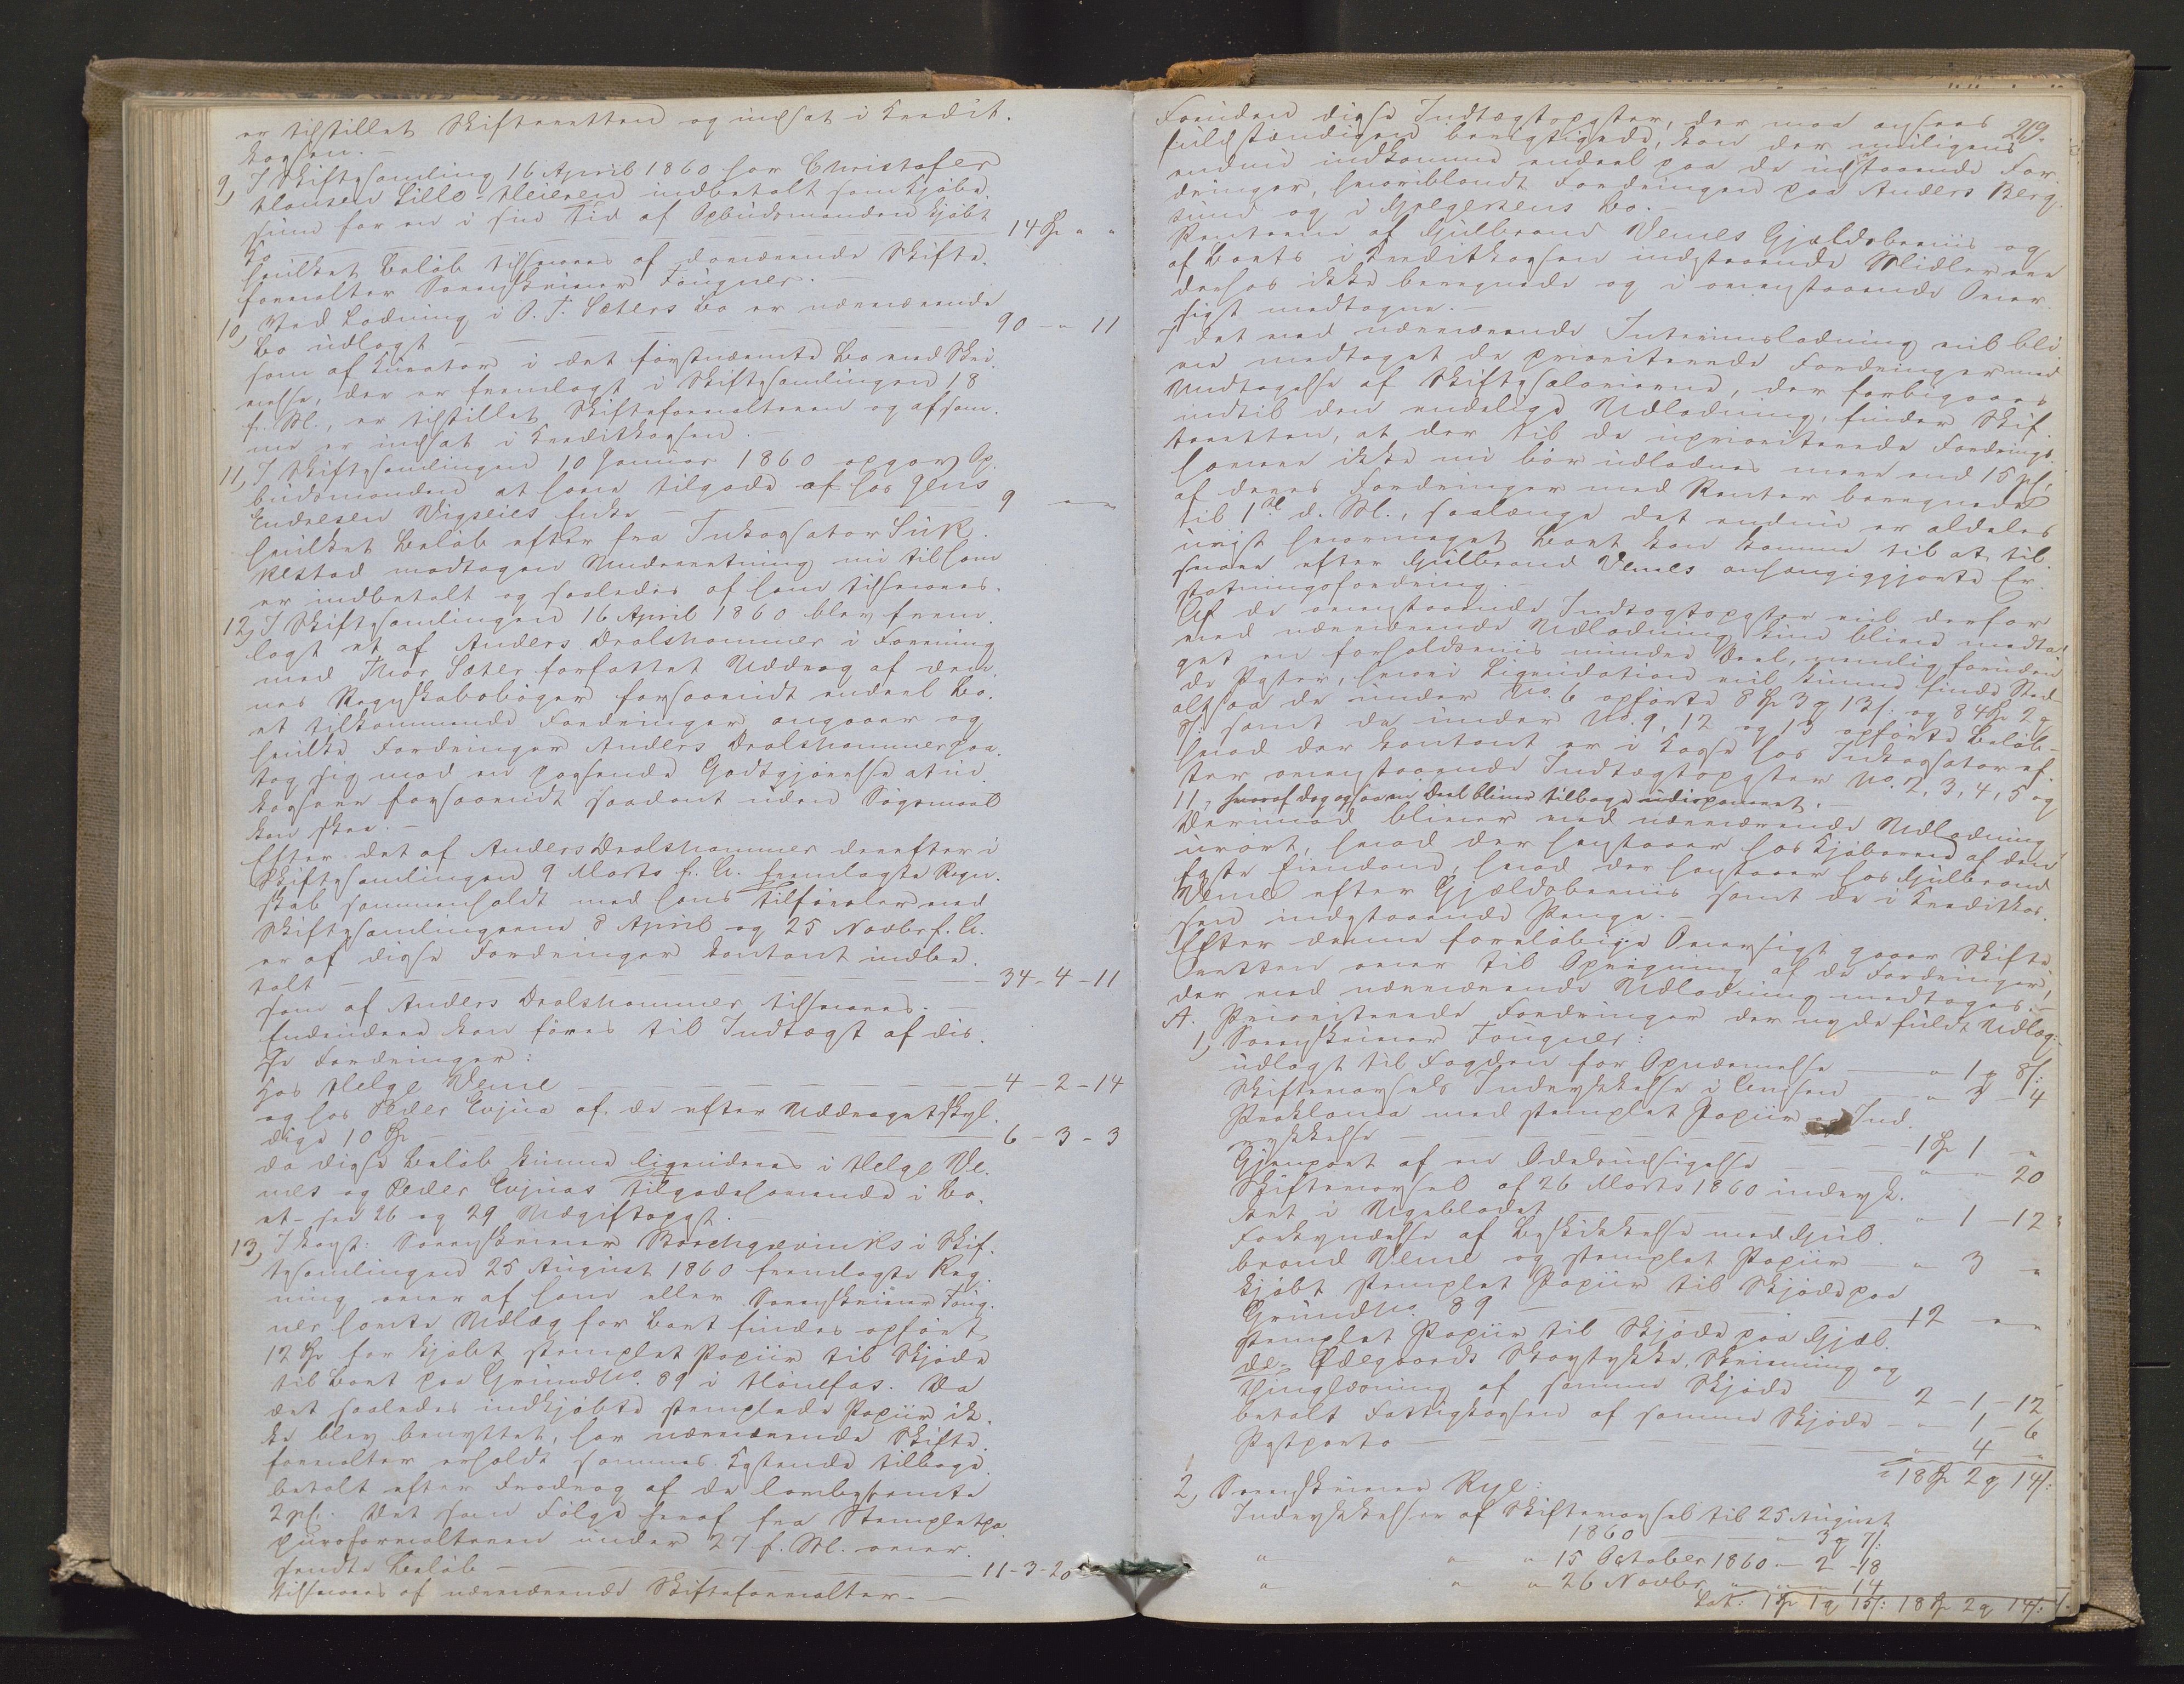 er tilstillet Skifteretten og indsat i Kredit-
kassen. –
9, I Skiftesamling 16 April 1860 har Christofer
Hansen Lille-Heieren indbetalt som Kjøbe-
sum for en i sin Tid af Opbudsmanden kjøbt
Ko — 14 Spd " "
hvilket Beløb tilsvares af daværende Skifte-
forvalter Sorenskriver Fougner. –
10, Ved Lodning i O. T. Sæters Bo er nærværende
Bo udlagt — 90 - " 11
som af Kurator i det førstnævnte Bo med Skri-
velse, der er fremlagt i Skiftesamlingen 18
f. M., er tilstillet Skifteforvalteren og af sam-
me er indsat i Kreditkassen. –
11, I Skiftesamlingen 10 Januar 1860 opgav Op-
budsmanden at have tilgode af hos Jens
Endresen Vigseies Enke — 9 " "
hvilket Beløb efter fra Inkassator Luk-
kestad modtagen Underretning nu til ham
er indbetalt og saaledes af ham tilsvares.
12, I Skiftesamlingen 16 April 1860 blev frem-
lagt et af Anders Drolshammer i Forening
med Thor Sæter forfattet Uddrag af den-
nes Regnskabsbøger forsaavidt endeel Bo-
et tilkommende Fordringer angaaer og
hvilke Fordringer Anders Drolshammer paa-
tog sig mod en passende Godtgjørelse at in-
kassere forsaavidt saadant uden Søgsmaal
kan skee. –
Efter det af Anders Drolshammer derefter i
Skiftesamlingen 9 Marts f. A. fremlagte Regn-
skab sammenholdt med hans Tilførsler ved
Skiftesamlingerne 8 April og 25 Novbr f. A.
er af disse Fordringer kontant indbe-
talt — 34 - 4 - 11
som af Anders Drolshammer tilsvares. –
Endvidere kan føres til Indtægt af dis-
se Fordringer:
hos Helge Veme — 4 - 2 - 14
og hos Peder Evjua af de efter Uddraget skyl-
dige 10 Spd — 6 - 3 - 3
da disse Beløb kunne ligvideres i Helge Ve-
mes og Peder Evjuas Tilgodehavende i Bo-
et – see 26 og 29 Udgiftspost.
13, I konst: Sorenskriver Borchgrevinks i Skif-
tesamlingen 25 August 1860 fremlagte Reg-
ning over af ham eller Sorenskriver Foug-
ner havte Udlæg for Boet findes opført
12 Spd for kjøbt stemplet Papiir til Skjøde
til Boet paa Grund No. 89 i Hønefos. Da
det saaledes indkjøbte stemplede Papiir ik-
ke blev benyttet, har nærværende Skifte-
forvalter erholdt sammes Kostende tilbage-
betalt efter Fradrag af de lovbestemte
2 pCt. Det som Følge heraf fra Stempletpa-
piirsforvalteren under 27 f. M. over-
sendte Beløb — 11 - 3 - 20
tilsvares af nærværende Skifteforvalter. –
219.
Foruden disse Indtægtsposter, der maa ansees
fuldstændigen berigtigede, kan der muligens
endnu indkomme endeel paa de udstaaende For-
dringer, hvoriblandt Fordringen paa Anders Berg-
sund og i Helgesens Bo. –
Renterne af Gulbrand Vemes Gjældsbreviis og
af Boets i Kreditkassen indestaaende Midler ere
derhos ikke beregnede og i ovenstaaende Over-
sigt medtagne. –
I det ved nærværende Interimslodning vil bli-
ve medtaget de prioriterede Fordringer med
Undtagelse af Skiftesalarierne, der forbigaaes
indtil den endelige Udlodning, finder Skif-
teretten, at der til de uprioriterede Fordrings-
havere ikke nu bør udloddes mere end 15 pCt.
af deres Fordringer med Renter beregnede
til 1ste d. M., saalænge det endnu er aldeles
uvist hvormeget Boet kan komme til at til-
svare efter Gulbrand Vemes anhængiggjorte Er-
statningsfordring. –
Af de ovenstaaende Indtægtsposter vil derfor
ved nærværende Udlodning kun blive medta-
get en forholdsviis mindre Deel, nemlig foruden
de Poster, hvori Ligvidation vil kunne finde Sted
altsaa de under No. 6 opførte 8 Spd 3 ort 13 s: og 84 Spd 2 ort
8 s: samt de under No. 9, 12 og 13 opførte Beløb –
hvad der kontant er i Kasse hos Inkassator ef-
ter ovenstaaende Indtægtsposter No. 2, 3, 4, 5 og
11, hvoraf dog ogsaa en Deel bliver tilbage udisponeret. –
Derimod bliver ved nærværende Udlodning
urørt, hvad der henstaaer hos Kjøberne af den
faste Eiendom, hvad der henstaaer hos Gulbrand
Veme efter Gjældsbreviis samt de i Kreditkas-
sen indestaaende Penge. –
Efter denne foreløbige Oversigt gaaer Skifte-
retten over til Opregning af de Fordringer,
der ved nærværende Udlodning medtages. –
A. Prioriterede Fordringer der nyde fuldt Udlæg:
1, Sorenskriver Fougner:
udlagt til Fogden for Opnævnelse — " 1 ort 8 s:
Skiftevarsels Indrykkelse i Avisen — " 2 - 4
Proklama med stemplet Papiir og Ind-
rykkelse — 1 Spd 1 "
Gjenpart af en Odelsudsigelse — " " 20
Skiftevarsel af 26 Marts 1860 indryk-
ket i Ugebladet — " 1 - 12
Forkyndelse af Beskikkelse med Gul-
brand Veme og stemplet Papiir — " 3 "
kjøbt stemplet Papiir til Skjøde paa
Grund No. 89 — 12 " "
stemplet Papiir til Skjøde paa Gjæl-
de-Ødegaards Skovstykke, Skrivning og
Thinglæsning af samme Skjøde — 2 - 1 - 12
betalt Fattigkassen af samme Skjøde — " 1 - 6
Postporto — " 4 "
18 Spd 2 ort 14 s:
2, Sorenskriver Rye:
Indrykkelser af Skiftevarsel til 25 August
1860 — " 3 ort 7 s:
" " " 15 October 1860 — " 2 - 18
" " " 26 Novbr " — " " 14
Lat: 1 Spd 1 ort 15 s: 18 Spd 2 ort 14 s: